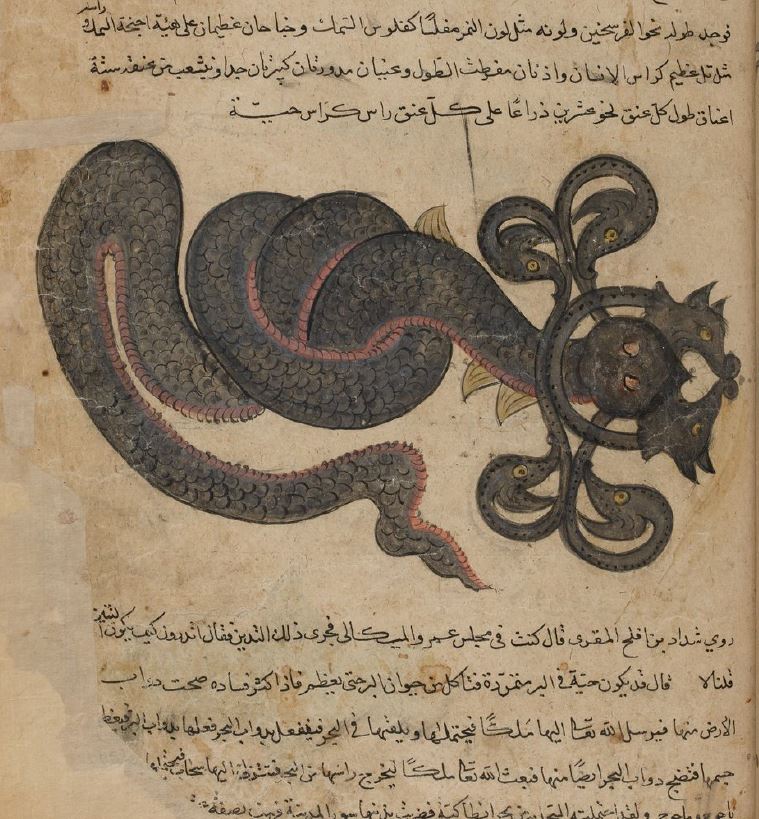 فوجد طوله نحو الفرسخين ولونه مثل لون النمر مفلسا كفلوس السمك وجناحان عظيمان على هيئة اجنحة السمك راسه
مثل تل عظيم كراس الانسان واذنان مفرطت الطول وعينان مدورتان كبيرتان جدا ويتشعب من عنقه ستة
اعناق طول كل عنق نحو عشرين ذراعا على كل عنق راس كراس حية
روي شداد بن افلح المقرى قال كنت في مجلس عمرو البكالى فجرى ذلك التنين فقال اتدرون كيف يكون التنين
قلنا لا قال قد يكون حية في البر متمردة فتاكل من حيوان البر حتى يعظم فاذا كثر فساده صحت دواب
الارض منها فيرسل الله تعا اليها ملكا فيحتملها ويلقيها في البحر فيفعل بدواب البحر فعلها بدواب البر فيعظم
جسمها فتضج دواب البحر ايضا منها فبعث الله تعا ملكا ليخرج راسها من البحر اليها سحاب
ياجوج وماجوج ولقد